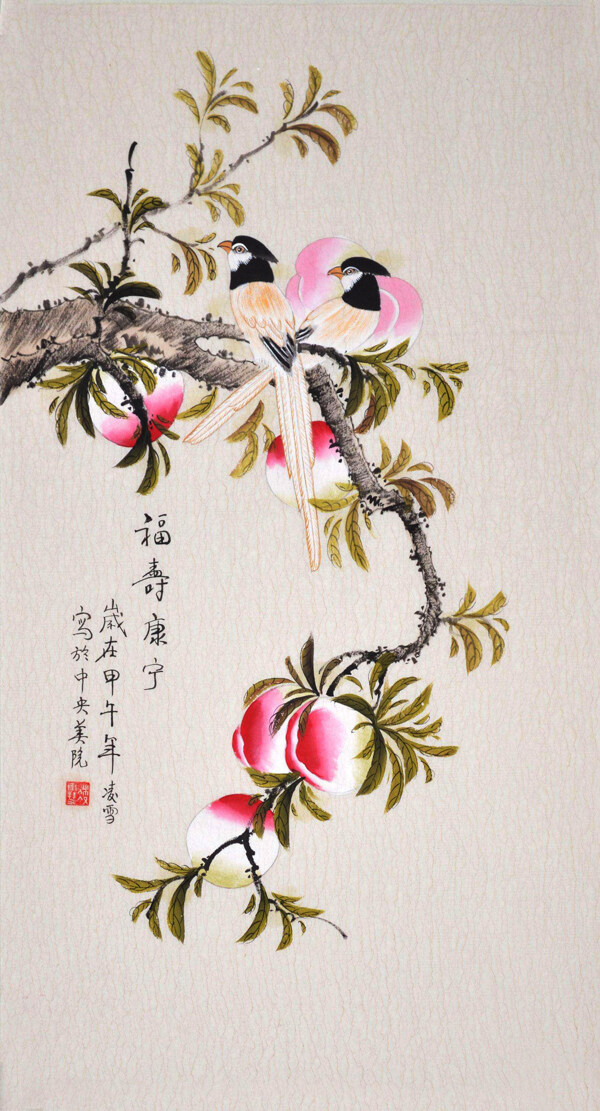 福壽康宁
歲在甲午年凌雪
写於中央美院